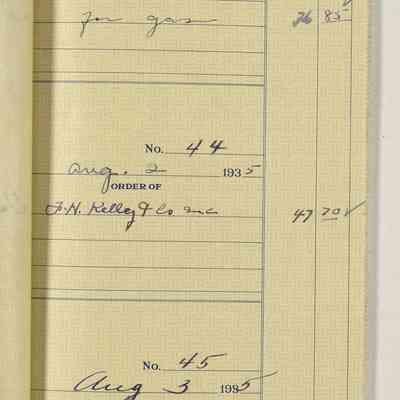 for gas 26 85
No. 44
Aug. 2 1935
ORDER OF
F.H. Kelley & Co Inc 47 70
No. 45
Aug 3 1935